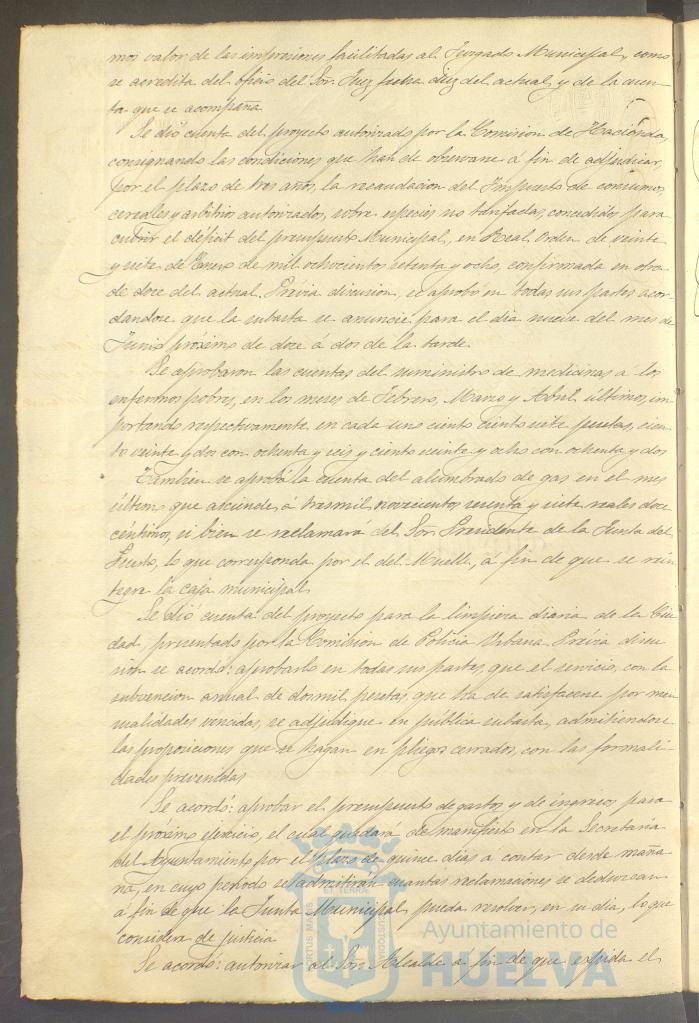 mos valor de las impresiones facilitadas al Juzgado Municipal, como
se acredita del oficio del Sor. Juez fecha diez del actual, y de la cuen-
ta que se acompaña.
Se dió cuenta del proyecto autorizado por la Comision de Hacienda,
consignando las condiciones que han de observarse á fin de adjudicar,
por el plazo de tres años, la recaudacion del Impuesto de consumos,
cereales y arbitrios autorizados, sobre especies no tarifadas, concedidos para
cubrir el déficit del presupuesto Municipal, en Real Orden de veinte
y siete de Enero de mil ochocientos setenta y ocho, confirmada en otra
de doce del actual. Prévia discusion, se aprobó en todas sus partes acor-
dandose que la subasta se anuncie para el dia nueve del mes de
Junio próximo de doce á dos de la tarde.
Se aprobaron las cuentas del suministro de medicinas a los
enfermos pobres, en los meses de Febrero, Marzo y Abril últimos, im-
portando respectivamente en cada uno ciento ciento siete pesetas, cien-
to veinte y dos con ochenta y seis y ciento veinte y ocho con ochenta y dos
Tambien se aprobó la cuenta del alumbrado de gas en el mes
último que asciende á tresmil novecientos sesenta y siete reales doce
céntimos, si bien se reclamará del Sor. Presidente de la Junta del
Puerto, lo que corresponda por el del Muelle, á fin de que se rein-
tegre la caja municipal.
Se dió cuenta del proyecto para la limpieza diaria de la Ciu-
dad, presentado por la Comision de Policia Urbana. Prévia discu-
sion se acordó: aprobarlo en todas sus partes, que el servicio, con la
subvencion anual de dosmil pesetas, que ha de satisfacerse por men-
sualidades vencidas, se adjudique en pública subasta, admitiendose
las proposiciones que se hagan en pliegos cerrados, con las formali-
dades prevenidas
Se acordó: aprobar el presupuesto de gastos y de ingresos para
el próximo ejercicio, el cual quedará de manifiesto en la Secretaria
del Ayuntamiento por el plazo de quince dias a contar desde maña-
na, en cuyo periodo se admitirán cuantas reclamaciones se deduzcan
á fin de que la Junta Municipal, pueda resolver, en su dia, lo que
considere de justicia
Se acordó: autorizar al Sor. Alcalde á fin de que expida el
Ayuntamiento de
HUELVA